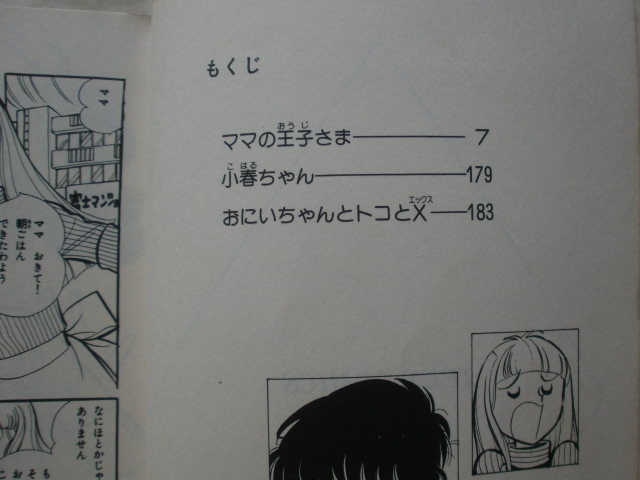 もくじ
ママの王子さま 7
小春ちゃん 179
おにいちゃんとトコとX 183
ママ
富士マンショ
ママ おきて!
朝ごはん
できたわよう
なにほとかじゃ
ありません
おそも